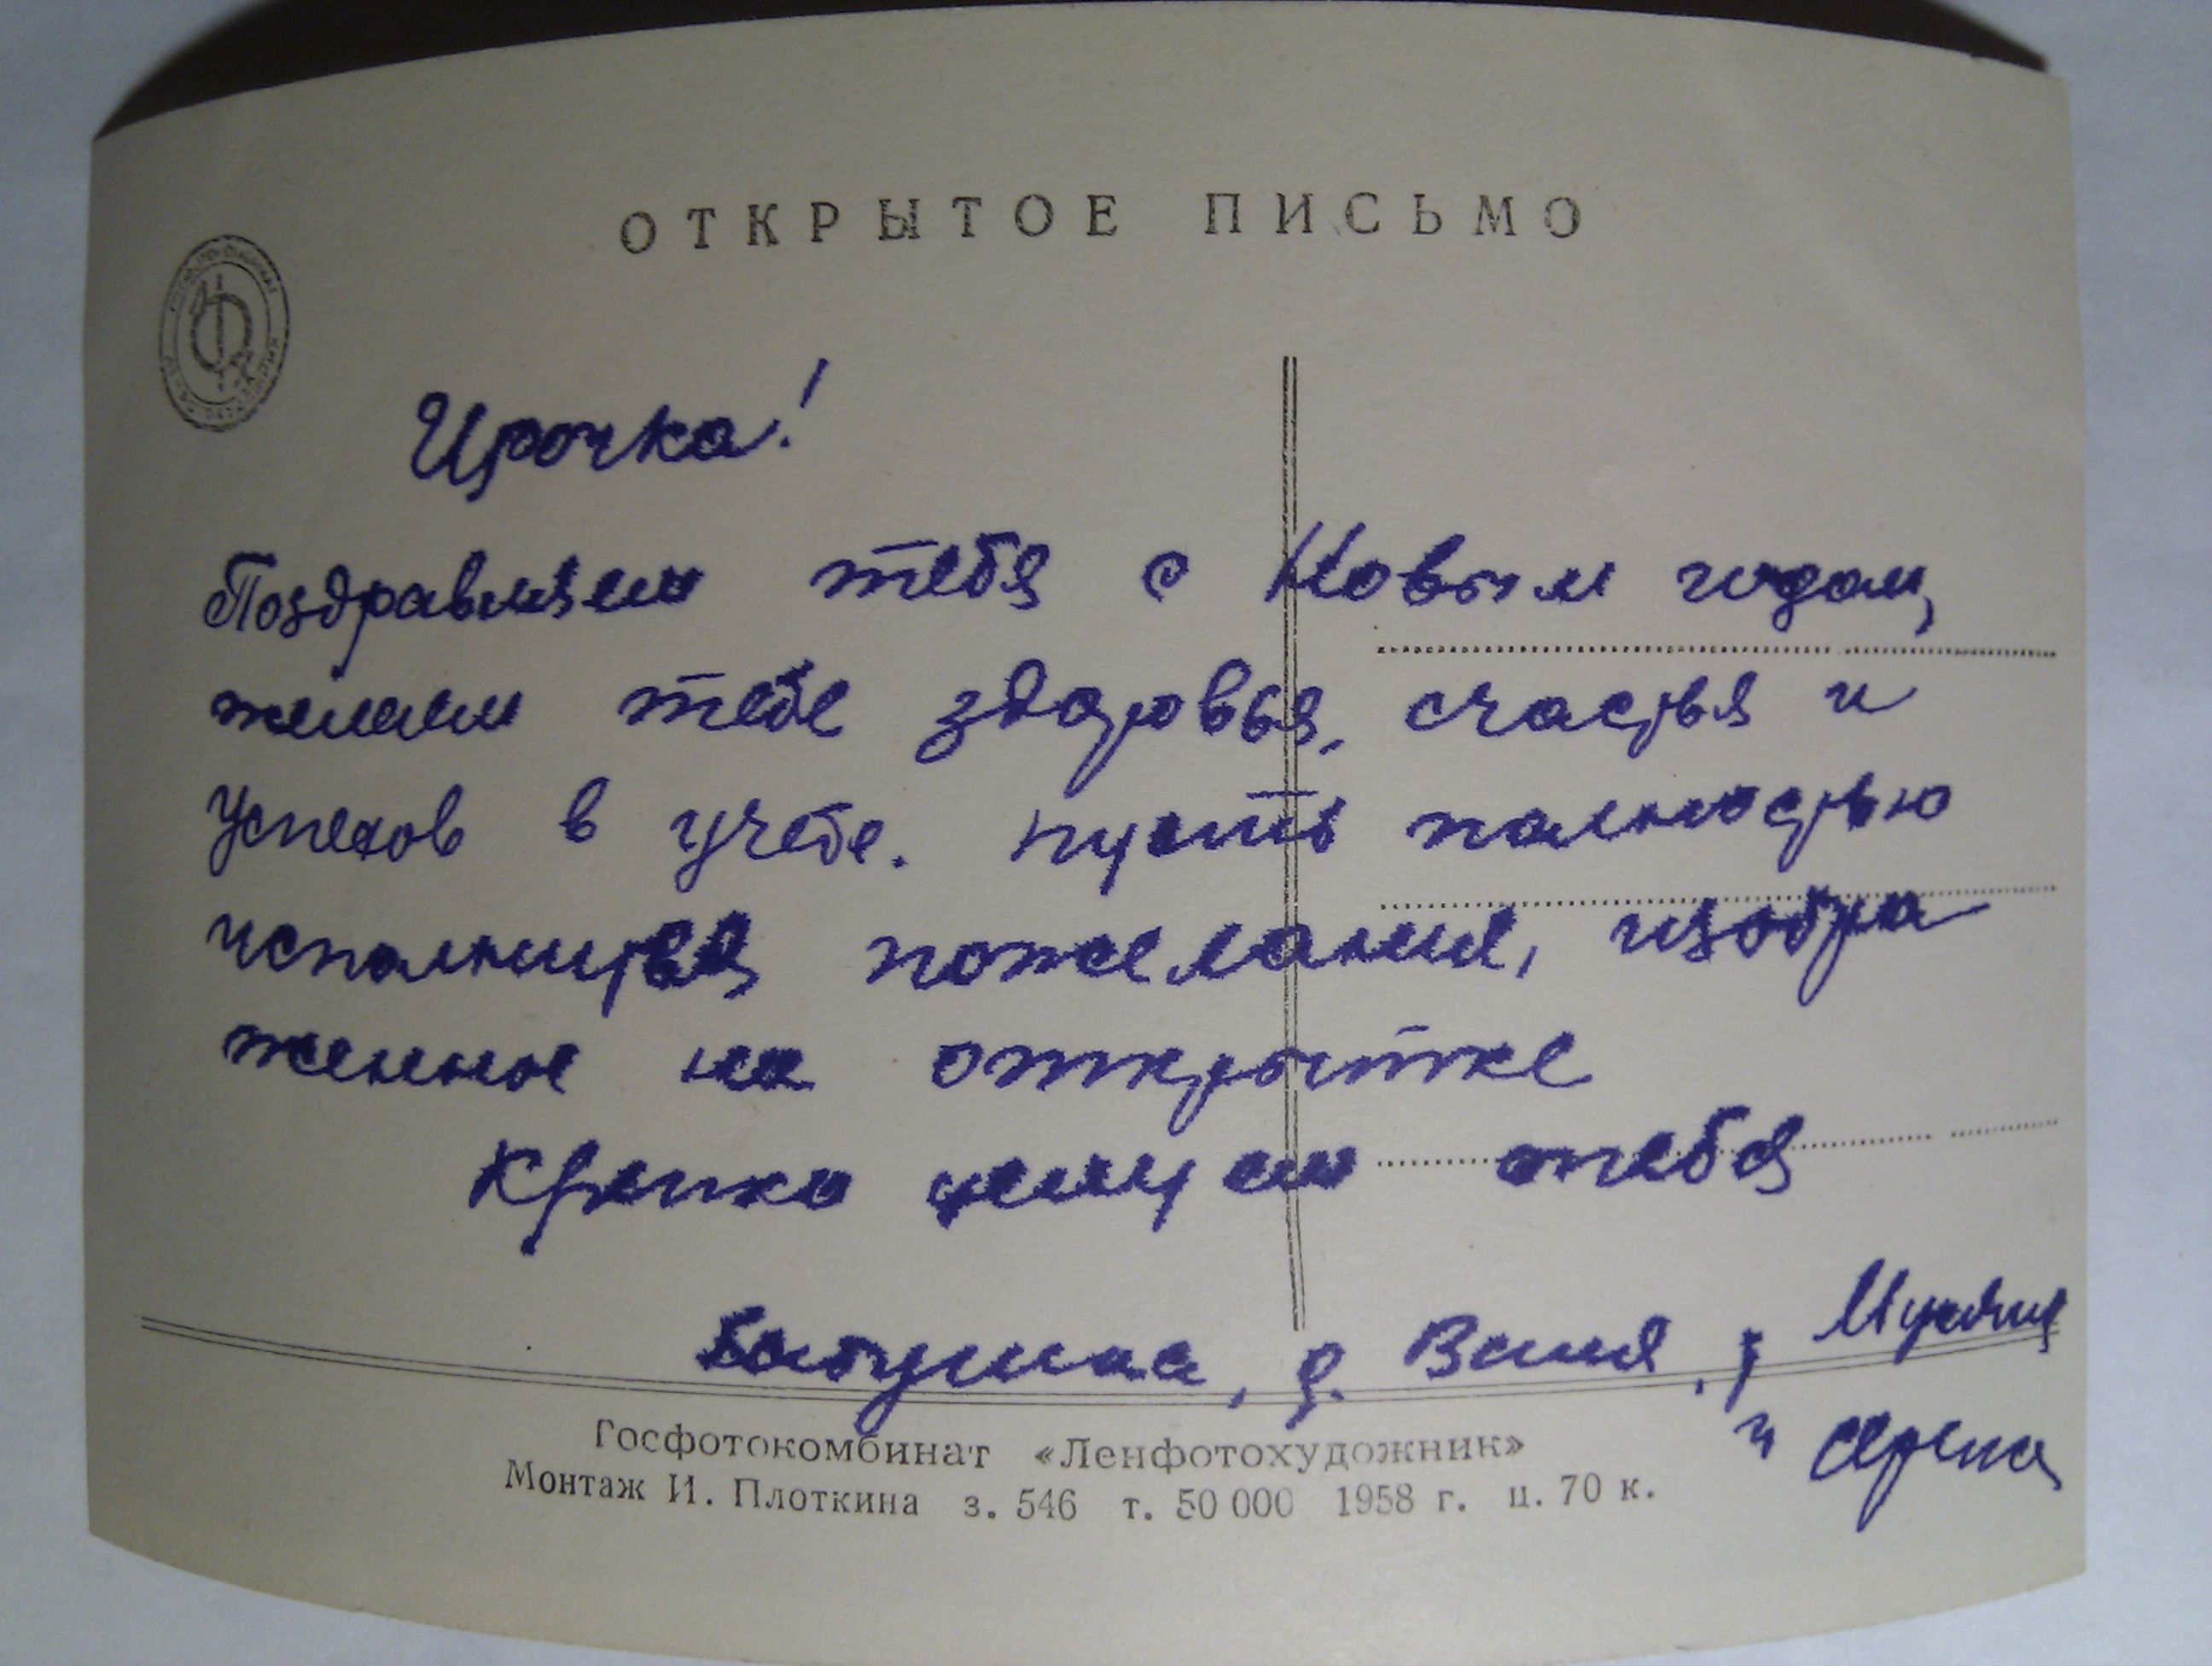 ОТКРЫТОЕ ПИСЬМО
Ирочка!
Поздравляем тебя с Новым годом,
желаем тебе здоровья, счастья и
успехов в учебе. Пусть полностью
исполнится пожелание, изобра
женное на открытке
Крепко целуем тебя
Бабушка, д. Ваня,
и Сережа
Госфотокомбинат «Ленфотохудожник»
Монтаж И. Плоткина з. 546 т. 50 000 1958 г. ц. 70 к.